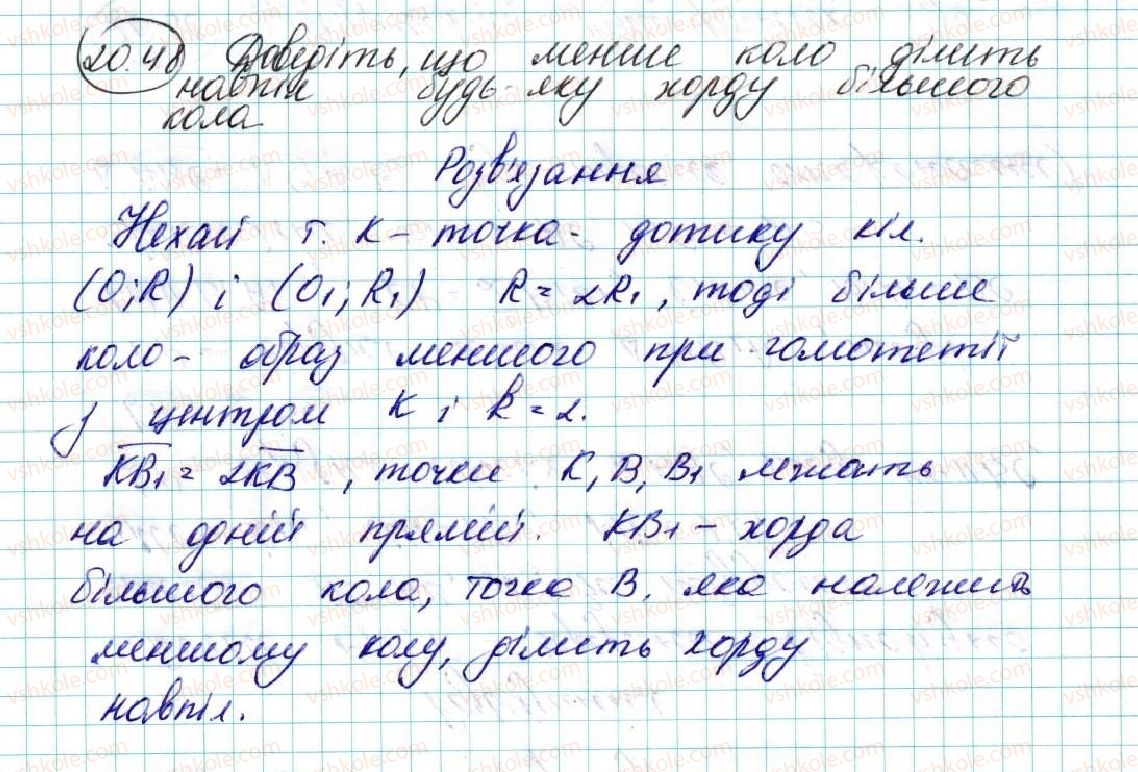 20.48 Доведіть, що менше коло ділить
навпіл будь-яку хорду більшого
кола
Розв'язання
Нехай т. K - точка дотику кіл.
(O; R) і (O1; R1) R = 2R1, тоді більше
коло - образ меншого при гомотетії
з центром K і k = 2.
KB1 = 2KB, точки K, B, B1 лежать
на одній прямій. KB1 - хорда
більшого кола, точка B, яка належить
меншому колу, ділить хорду
навпіл.